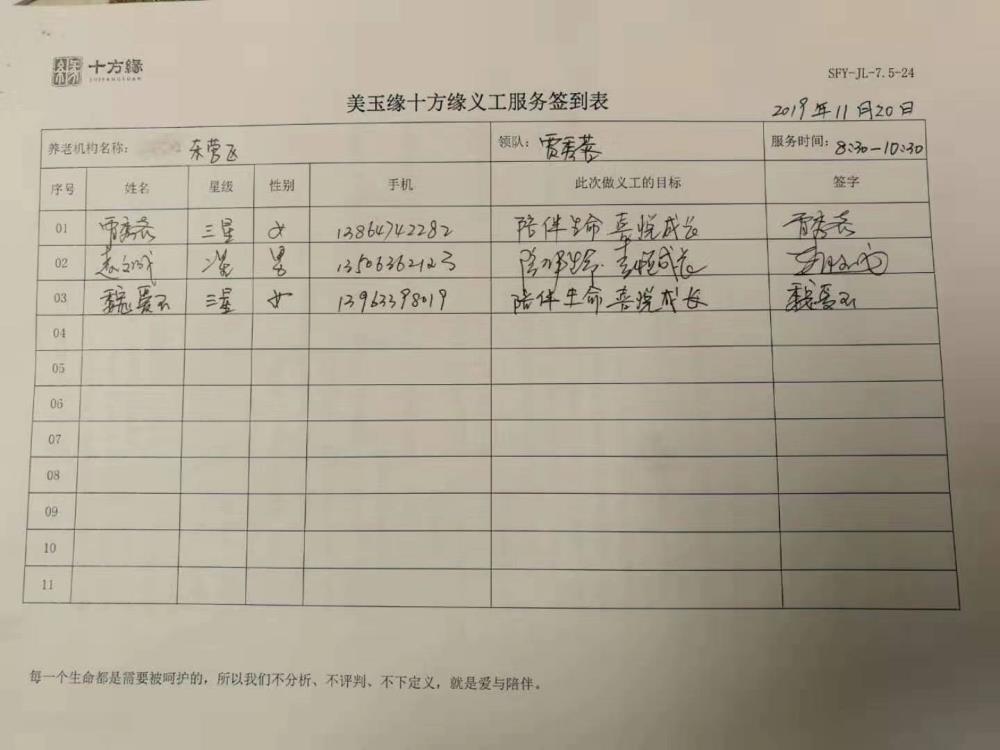 十方缘
SHIFANGYUAN
SFY-JL-7.5-24
美玉缘十方缘义工服务签到表
2019年11月20日
养老机构名称： 领队：贾秀蓉 服务时间：8:30-10:30
序号 姓名 星级 性别 手机 此次做义工的目标 签字
01 三星 女 13864742282 陪伴生命 喜悦成长
02 男 13506362123 陪伴生命 喜悦成长
03 魏爱玉 三星 女 13963398019 陪伴生命 喜悦成长 魏爱玉
04
05
06
07
08
09
10
11
每一个生命都是需要被呵护的，所以我们不分析、不评判、不下定义，就是爱与陪伴。